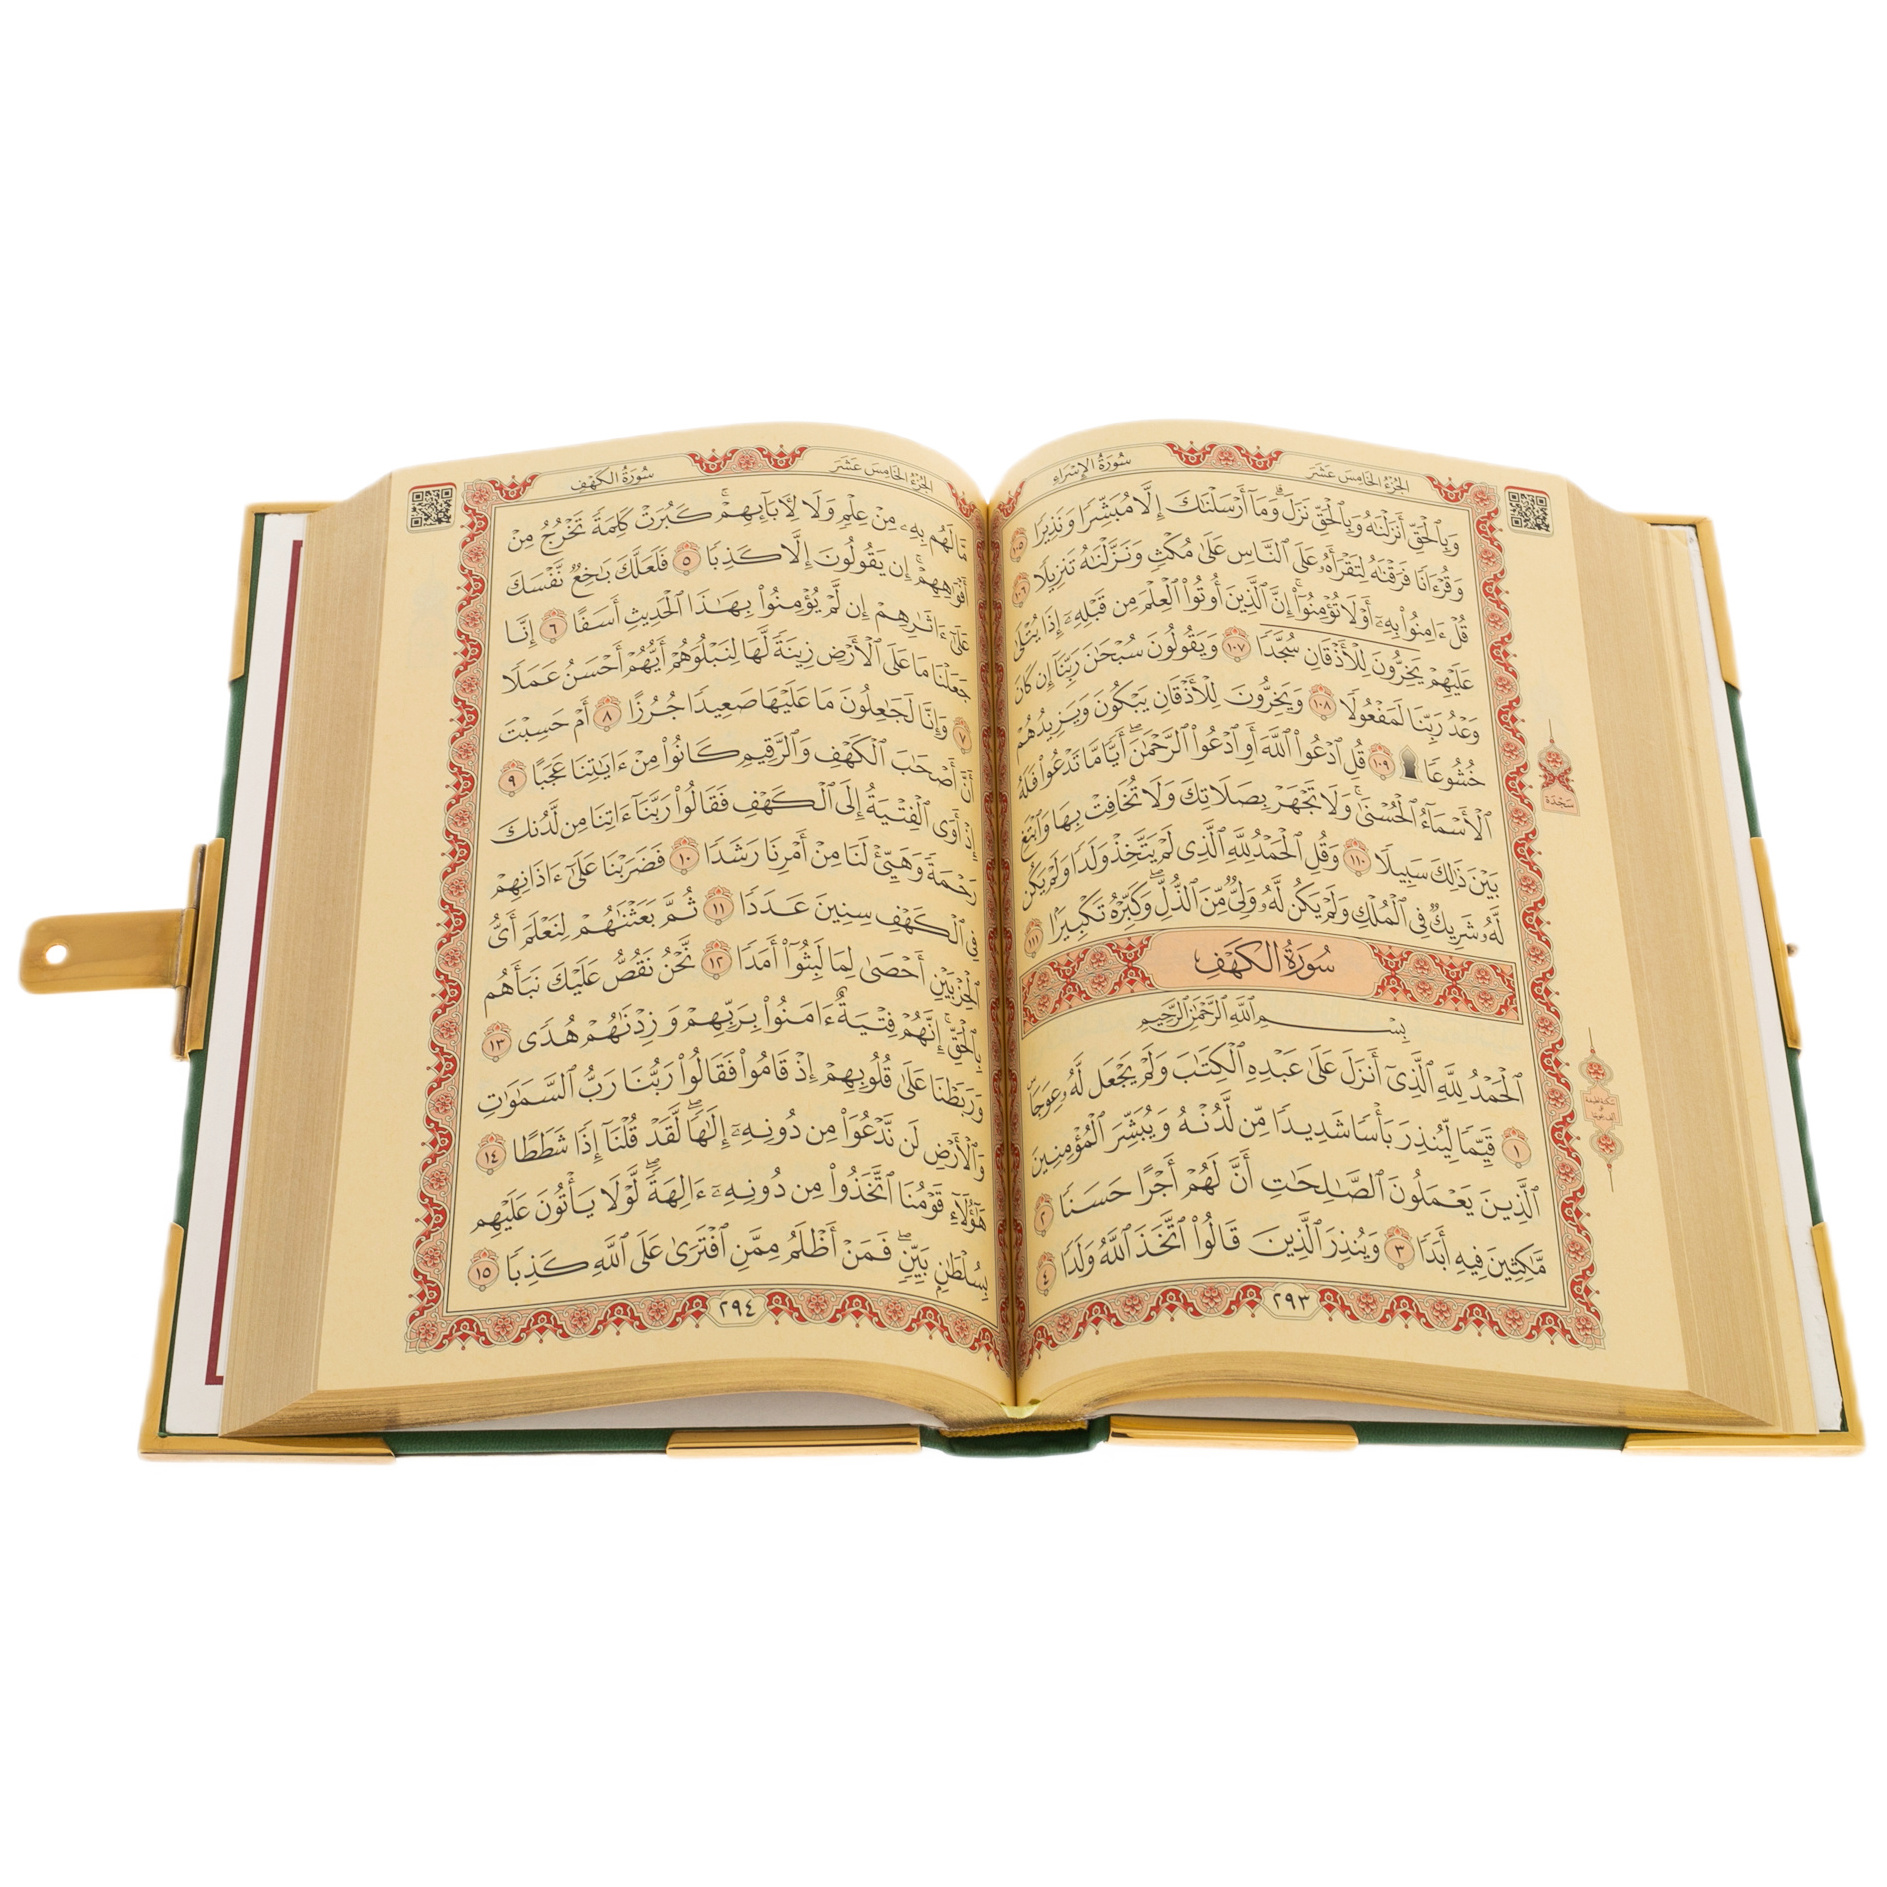 الجُزْءُ الخَامِسَ عَشَرَ
سُورَةُ الإِسْرَاءِ
وَبِٱلْحَقِّ أَنزَلْنَٰهُ وَبِٱلْحَقِّ نَزَلَ ۗ وَمَآ أَرْسَلْنَٰكَ إِلَّا مُبَشِّرًا وَنَذِيرًا ١٠٥
وَقُرْءَانًا فَرَقْنَٰهُ لِتَقْرَأَهُۥ عَلَى ٱلنَّاسِ عَلَىٰ مُكْثٍ وَنَزَّلْنَٰهُ تَنزِيلًا ١٠٦
قُلْ ءَامِنُوا۟ بِهِۦٓ أَوْ لَا تُؤْمِنُوٓا۟ ۚ إِنَّ ٱلَّذِينَ أُوتُوا۟ ٱلْعِلْمَ مِن قَبْلِهِۦٓ إِذَا يُتْلَىٰ
عَلَيْهِمْ يَخِرُّونَ لِلْأَذْقَانِ سُجَّدًا ١٠٧ وَيَقُولُونَ سُبْحَٰنَ رَبِّنَآ إِن كَانَ
وَعْدُ رَبِّنَا لَمَفْعُولًا ١٠٨ وَيَخِرُّونَ لِلْأَذْقَانِ يَبْكُونَ وَيَزِيدُهُمْ
خُشُوعًا ١٠٩ قُلِ ٱدْعُوا۟ ٱللَّهَ أَوِ ٱدْعُوا۟ ٱلرَّحْمَٰنَ ۖ أَيًّا مَّا تَدْعُوا۟ فَلَهُ
ٱلْأَسْمَآءُ ٱلْحُسْنَىٰ ۚ وَلَا تَجْهَرْ بِصَلَاتِكَ وَلَا تُخَافِتْ بِهَا وَٱبْتَغِ
بَيْنَ ذَٰلِكَ سَبِيلًا ١١٠ وَقُلِ ٱلْحَمْدُ لِلَّهِ ٱلَّذِى لَمْ يَتَّخِذْ وَلَدًا وَلَمْ يَكُن
لَّهُۥ شَرِيكٌ فِى ٱلْمُلْكِ وَلَمْ يَكُن لَّهُۥ وَلِىٌّ مِّنَ ٱلذُّلِّ ۖ وَكَبِّرْهُ تَكْبِيرًۢا ١١١
سُورَةُ الكَهْفِ
بِسْمِ ٱللَّهِ ٱلرَّحْمَٰنِ ٱلرَّحِيمِ
ٱلْحَمْدُ لِلَّهِ ٱلَّذِىٓ أَنزَلَ عَلَىٰ عَبْدِهِ ٱلْكِتَٰبَ وَلَمْ يَجْعَل لَّهُۥ عِوَجَا ۜ
١ قَيِّمًا لِّيُنذِرَ بَأْسًا شَدِيدًا مِّن لَّدُنْهُ وَيُبَشِّرَ ٱلْمُؤْمِنِينَ
ٱلَّذِينَ يَعْمَلُونَ ٱلصَّٰلِحَٰتِ أَنَّ لَهُمْ أَجْرًا حَسَنًا ٢
مَّٰكِثِينَ فِيهِ أَبَدًا ٣ وَيُنذِرَ ٱلَّذِينَ قَالُوا۟ ٱتَّخَذَ ٱللَّهُ وَلَدًا ٤
٢٩٣
سَجْدَة
الجُزْءُ الخَامِسَ عَشَرَ
سُورَةُ الكَهْفِ
لَهُم بِهِۦ مِنْ عِلْمٍ وَلَا لِـَٔابَآئِهِمْ ۚ كَبُرَتْ كَلِمَةً تَخْرُجُ مِنْ
أَفْوَٰهِهِمْ ۚ إِن يَقُولُونَ إِلَّا كَذِبًا ٥ فَلَعَلَّكَ بَٰخِعٌ نَّفْسَكَ
عَلَىٰٓ ءَاثَٰرِهِمْ إِن لَّمْ يُؤْمِنُوا۟ بِهَٰذَا ٱلْحَدِيثِ أَسَفًا ٦ إِنَّا
جَعَلْنَا مَا عَلَى ٱلْأَرْضِ زِينَةً لَّهَا لِنَبْلُوَهُمْ أَيُّهُمْ أَحْسَنُ عَمَلًا
٧ وَإِنَّا لَجَٰعِلُونَ مَا عَلَيْهَا صَعِيدًا جُرُزًا ٨ أَمْ حَسِبْتَ
أَصْحَٰبَ ٱلْكَهْفِ وَٱلرَّقِيمِ كَانُوا۟ مِنْ ءَايَٰتِنَا عَجَبًا ٩
أَوَى ٱلْفِتْيَةُ إِلَى ٱلْكَهْفِ فَقَالُوا۟ رَبَّنَآ ءَاتِنَا مِن لَّدُنكَ
رَحْمَةً وَهَيِّئْ لَنَا مِنْ أَمْرِنَا رَشَدًا ١٠ فَضَرَبْنَا عَلَىٰٓ ءَاذَانِهِمْ
ٱلْكَهْفِ سِنِينَ عَدَدًا ١١ ثُمَّ بَعَثْنَٰهُمْ لِنَعْلَمَ أَىُّ
ٱلْحِزْبَيْنِ أَحْصَىٰ لِمَا لَبِثُوٓا۟ أَمَدًا ١٢ نَّحْنُ نَقُصُّ عَلَيْكَ نَبَأَهُم
بِٱلْحَقِّ ۚ إِنَّهُمْ فِتْيَةٌ ءَامَنُوا۟ بِرَبِّهِمْ وَزِدْنَٰهُمْ هُدًى ١٣
وَرَبَطْنَا عَلَىٰ قُلُوبِهِمْ إِذْ قَامُوا۟ فَقَالُوا۟ رَبُّنَا رَبُّ ٱلسَّمَٰوَٰتِ
وَٱلْأَرْضِ لَن نَّدْعُوَا۟ مِن دُونِهِۦٓ إِلَٰهًا ۖ لَّقَدْ قُلْنَآ إِذًا شَطَطًا ١٤
هَٰٓؤُلَآءِ قَوْمُنَا ٱتَّخَذُوا۟ مِن دُونِهِۦٓ ءَالِهَةً ۖ لَّوْلَا يَأْتُونَ عَلَيْهِم
بِسُلْطَٰنٍۭ بَيِّنٍ ۖ فَمَنْ أَظْلَمُ مِمَّنِ ٱفْتَرَىٰ عَلَى ٱللَّهِ كَذِبًا ١٥
٢٩٤